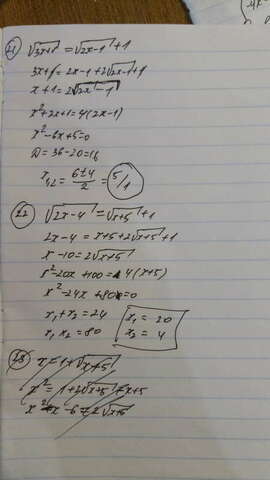 21 √3x+1 = √2x-1 + 1
3x+1 = 2x-1+2√2x-1+1
x+1 = 2√2x-1
x²+2x+1 = 4(2x-1)
x²-6x+5=0
D = 36-20=16
x₁,₂ = 6±4/2 = 5/1
22 √2x-4 = √x+5 + 1
2x-4 = x+5+2√x+5+1
x-10 = 2√x+5
x²-20x+100 = 4(x+5)
x²-24x+80=0
x₁+x₂ = 24
x₁x₂ = 80
x₁ = 20
x₂ = 4
23 x = 1+√x+5
x² = 1+2√x+5+x+5
x²-x-6=2√x+5